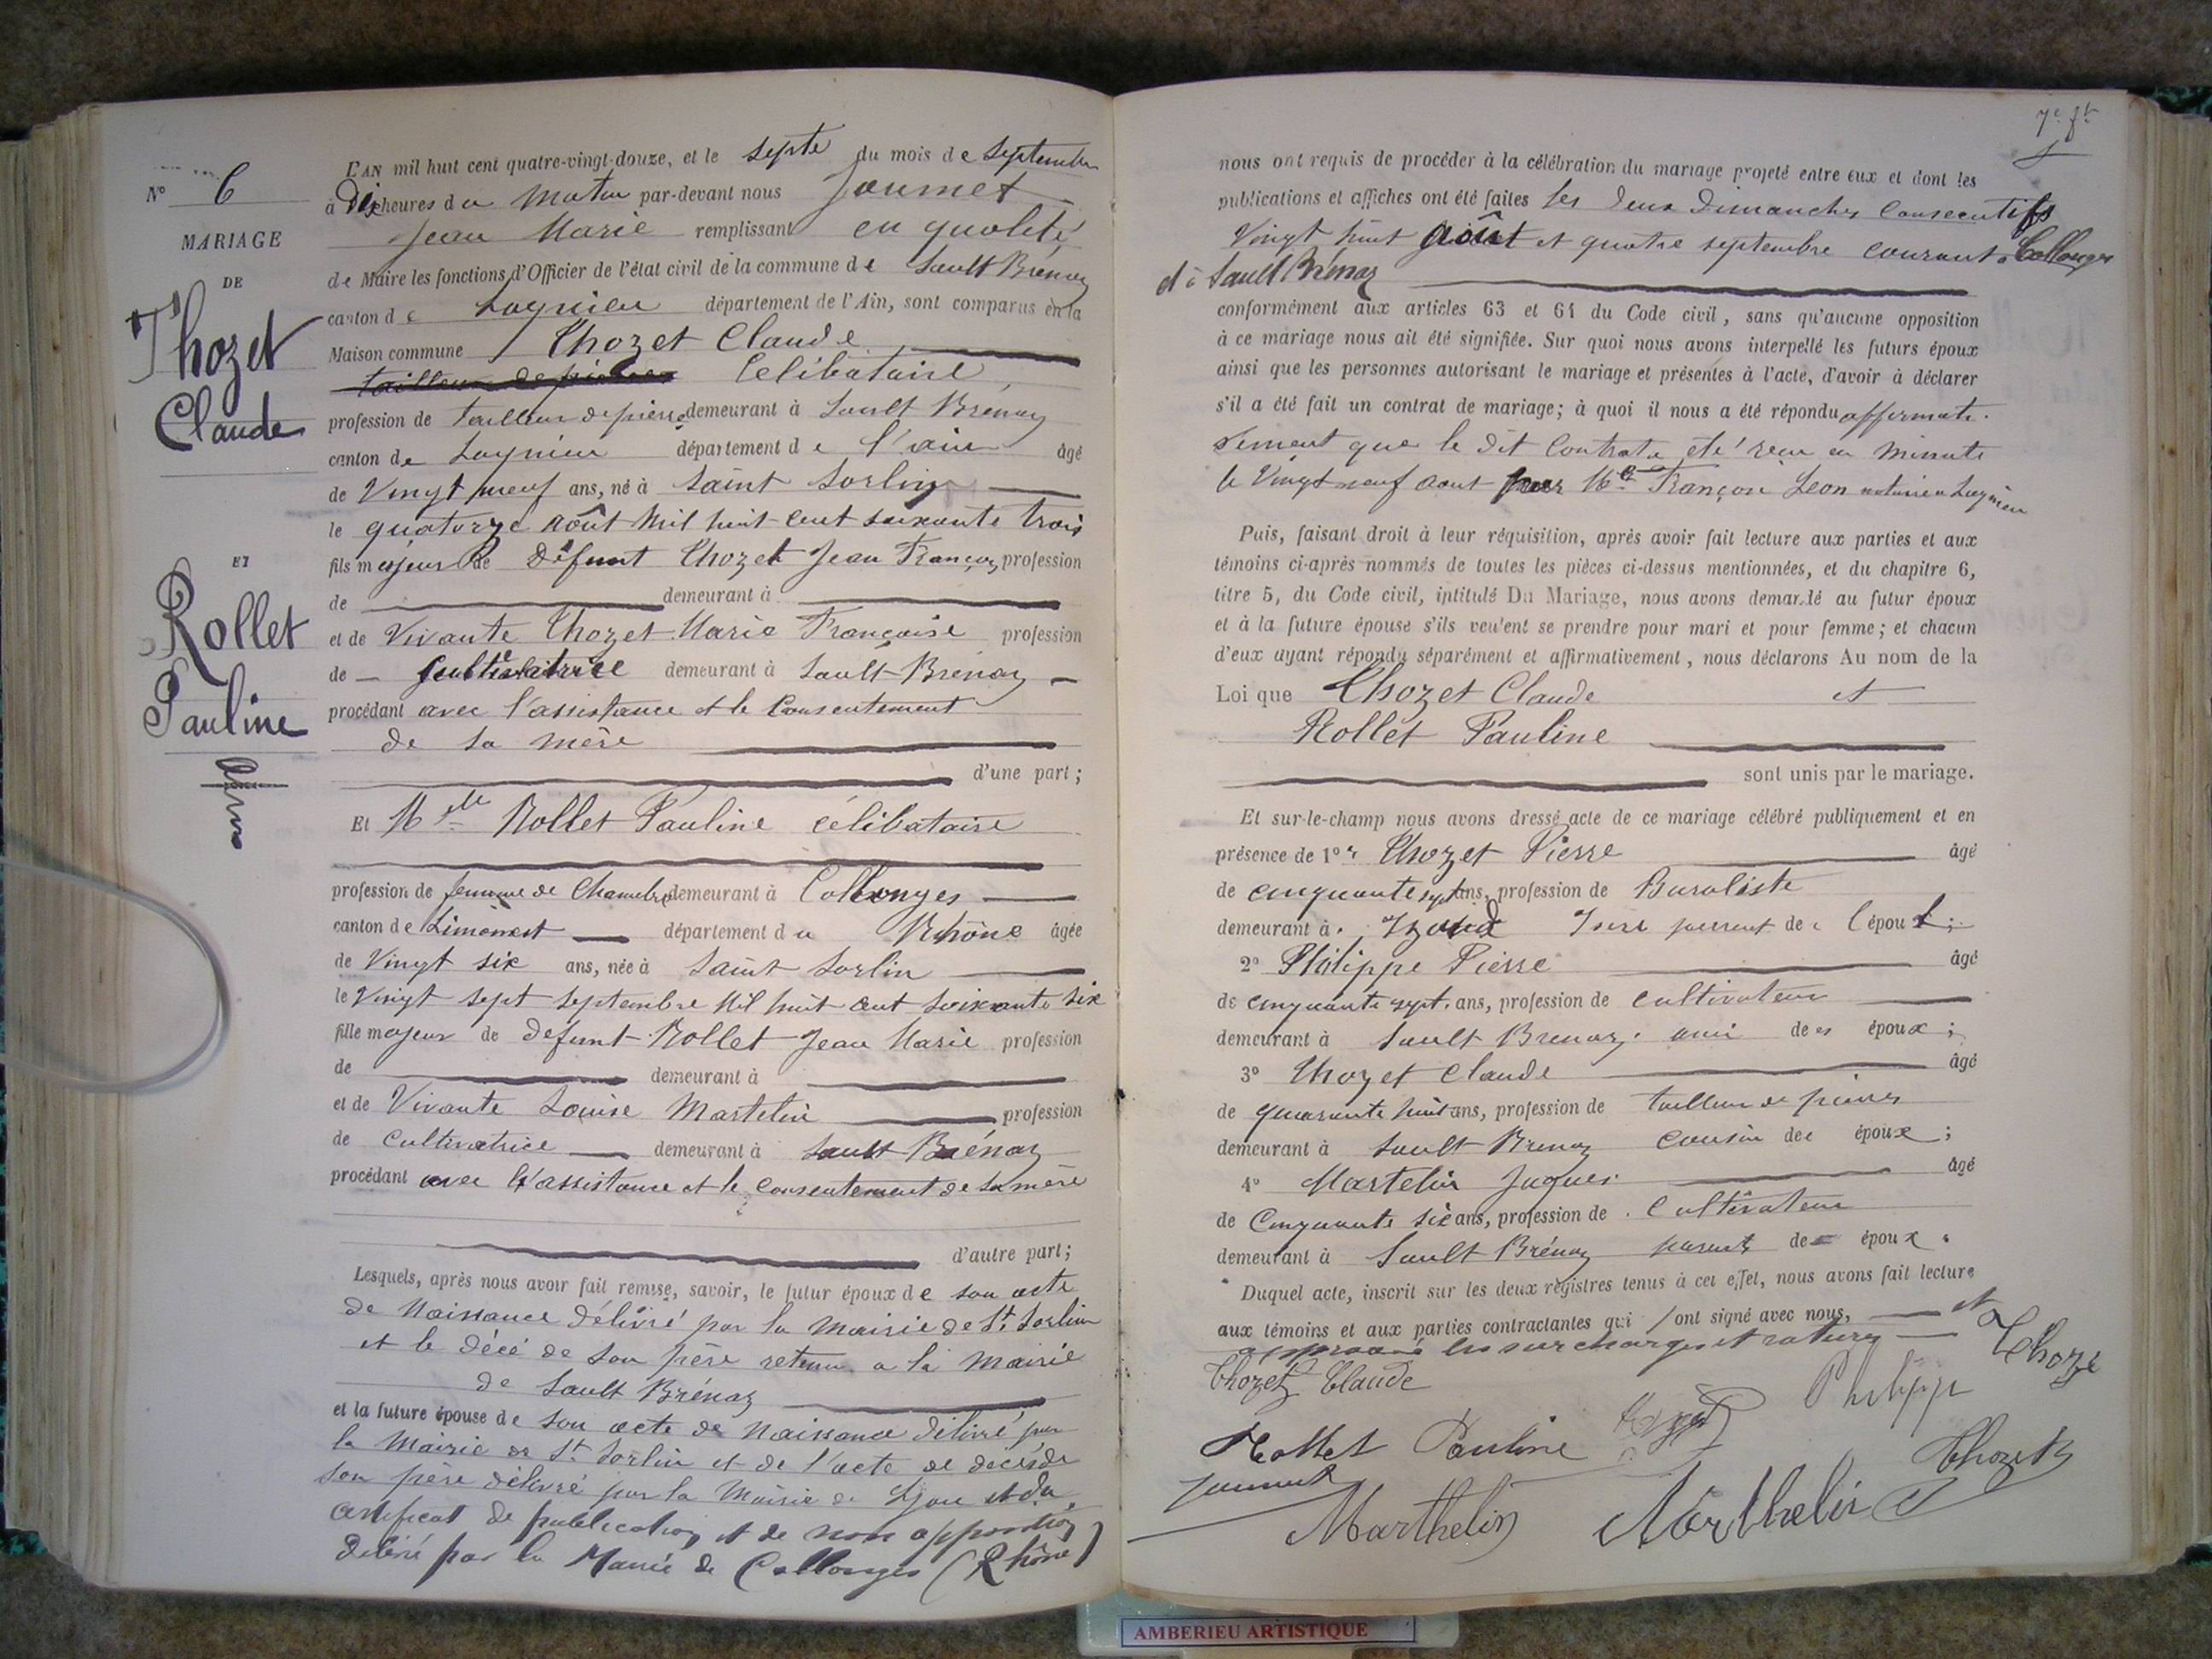 N° 6
MARIAGE
DE
Thozet
Claude
ET
Rollet
Pauline
L'AN mil huit cent quatre-vingt-douze, et le septe du mois de Septembre
à Dix heures du Matin par-devant nous Joumet
Jean Marie remplissant en qualité
de Maire les fonctions d'Officier de l'état civil de la commune de Sault Brénaz
canton de Lagnieu département de l'Ain, sont comparus en la
Maison commune Thozet Claude
tailleur de pierres Célibataire
profession de tailleur de pierre demeurant à Sault Brénaz
canton de Lagnieu département de l'ain âgé
de Vingt neuf ans, né à Saint Sorlin
le quatorze Août Mil huit cent soixante trois
fils majeur de Défunt Thozet Jean François profession
de demeurant à
et de Vivante Thozet Marie Françoise profession
de Cultivatrice demeurant à Sault-Brénaz
procédant avec l'assistance et le Consentement
de sa mère
d'une part;
Et Melle Rollet Pauline célibataire
profession de femme de Chambre demeurant à Collonges
canton de Limonest département du Rhône âgée
de Vingt six ans, née à Saint Sorlin
le Vingt sept septembre Mil huit cent soixante six
fille majeur de defunt Rollet Jean Marie profession
de demeurant à
et de Vivante Louise Martelin profession
de Cultivatrice demeurant à Sault Brénaz
procédant avec l'assistance et le consentement de sa mère
d'autre part;
Lesquels, après nous avoir fait remise, savoir, le futur époux de son acte
de Naissance délivré par la Mairie de St Sorlin
et le décé de son père retenu a la Mairie
de Sault Brénaz
et la future épouse de son acte de Naissance délivré par
la Mairie de St Sorlin et de l'acte de décés de
son père délivré par la Mairie de Lyon et du
certificat de publication et de non opposition
délivré par la Mairie de Collonges (Rhône)
7e ft
nous ont requis de procéder à la célébration du mariage projeté entre eux et dont les
publications et affiches ont été faites les deux Dimanches Consecutifs
Vingt huit Août et quatre septembre courant à Collonges
et à Sault Brénaz
conformément aux articles 63 et 64 du Code civil, sans qu'aucune opposition
à ce mariage nous ait été signifiée. Sur quoi nous avons interpellé les futurs époux
ainsi que les personnes autorisant le mariage et présentes à l'acte, d'avoir à déclarer
s'il a été fait un contrat de mariage; à quoi il nous a été répondu affirmati-
vement que le dit Contrat a été recu en Minute
le Vingt neuf aout par Me François Leon notaire a Lagnieu
Puis, faisant droit à leur réquisition, après avoir fait lecture aux parties et aux
témoins ci-après nommés de toutes les pièces ci-dessus mentionnées, et du chapitre 6,
titre 5, du Code civil, intitulé Du Mariage, nous avons demandé au futur époux
et à la future épouse s'ils veulent se prendre pour mari et pour femme; et chacun
d'eux ayant répondu séparément et affirmativement, nous déclarons Au nom de la
Loi que Thozet Claude et
Rollet Pauline
sont unis par le mariage.
Et sur-le-champ nous avons dressé acte de ce mariage célébré publiquement et en
présence de 1° Thozet Pierre âgé
de cinquante sept ans, profession de Buraliste
demeurant à Isère parent de l'épou
2° Philippe Pierre âgé
de cinquante sept ans, profession de cultivateur
demeurant à Sault Brenaz ami des époux;
3° Thozet Claude âgé
de quarante huit ans, profession de tailleur de pierres
demeurant à Sault Brenaz cousin des époux;
4° Martelin Jaques âgé
de Cinquante six ans, profession de Cultivateur
demeurant à Sault Brénaz parent des époux.
Duquel acte, inscrit sur les deux registres tenus à cet effet, nous avons fait lecture
aux témoins et aux parties contractantes qui ont signé avec nous, et
approuvé les surcharges et ratures
Thozet Claude Philipp Thoze
Rollet Pauline Thozet
Joumet
Marthelin Marthelin
AMBERIEU ARTISTIQUE